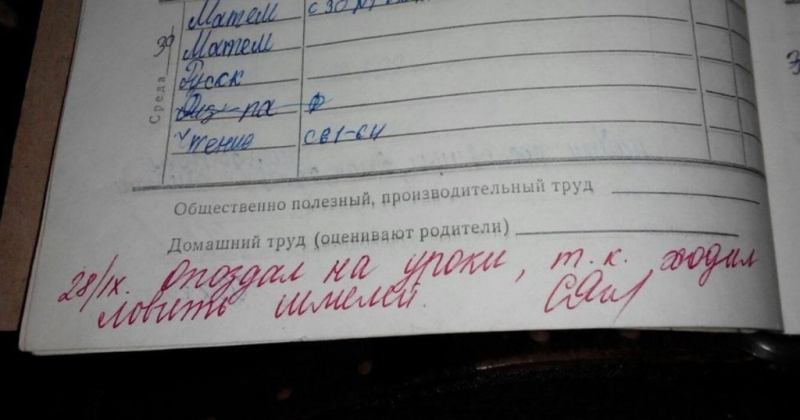 Матем
30 Матем
Среда
Русск
Физ-ра ф
Чтение с 61-64
Общественно полезный, производительный труд
Домашний труд (оценивают родители)
28/IX. Опоздал на уроки, т.к. ходил
ловить шмелей.